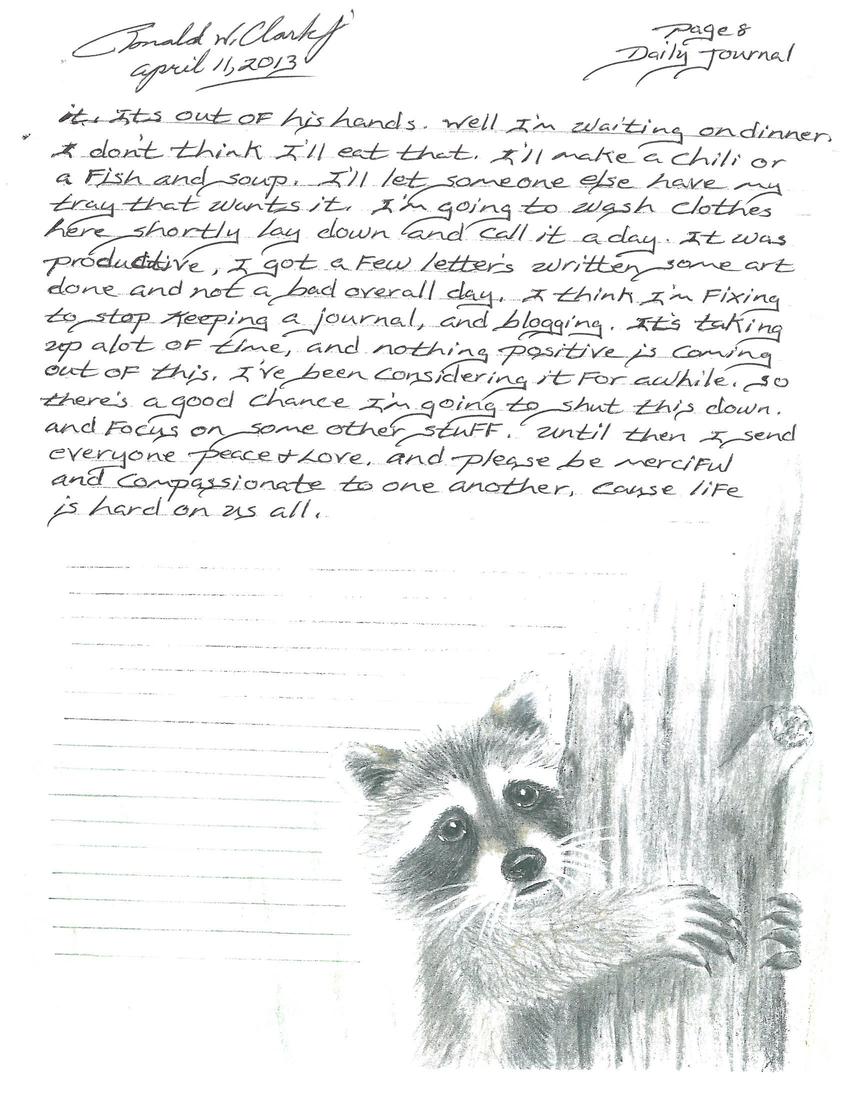 Ronald W. Clark Jr
april 11, 2013
page 8
Daily Journal
it. Its out of his hands. Well I'm waiting on dinner.
I don't think I'll eat that. I'll make a chili or
a Fish and soup. I'll let someone else have my
tray that wants it. I'm going to wash clothes
here shortly lay down and call it a day. It was
productive, I got a Few letter's written some art
done and not a bad overall day. I think I'm Fixing
to stop Keeping a journal, and blogging. It's taking
up alot OF time, and nothing positive is coming
out OF this. I've been considering it For awhile. So
there's a good chance I'm going to shut this down.
and Focus on some other stuFF. Until then I send
everyone peace & Love, and please be merciFul
and compassionate to one another, cause liFe
is hard on us all.